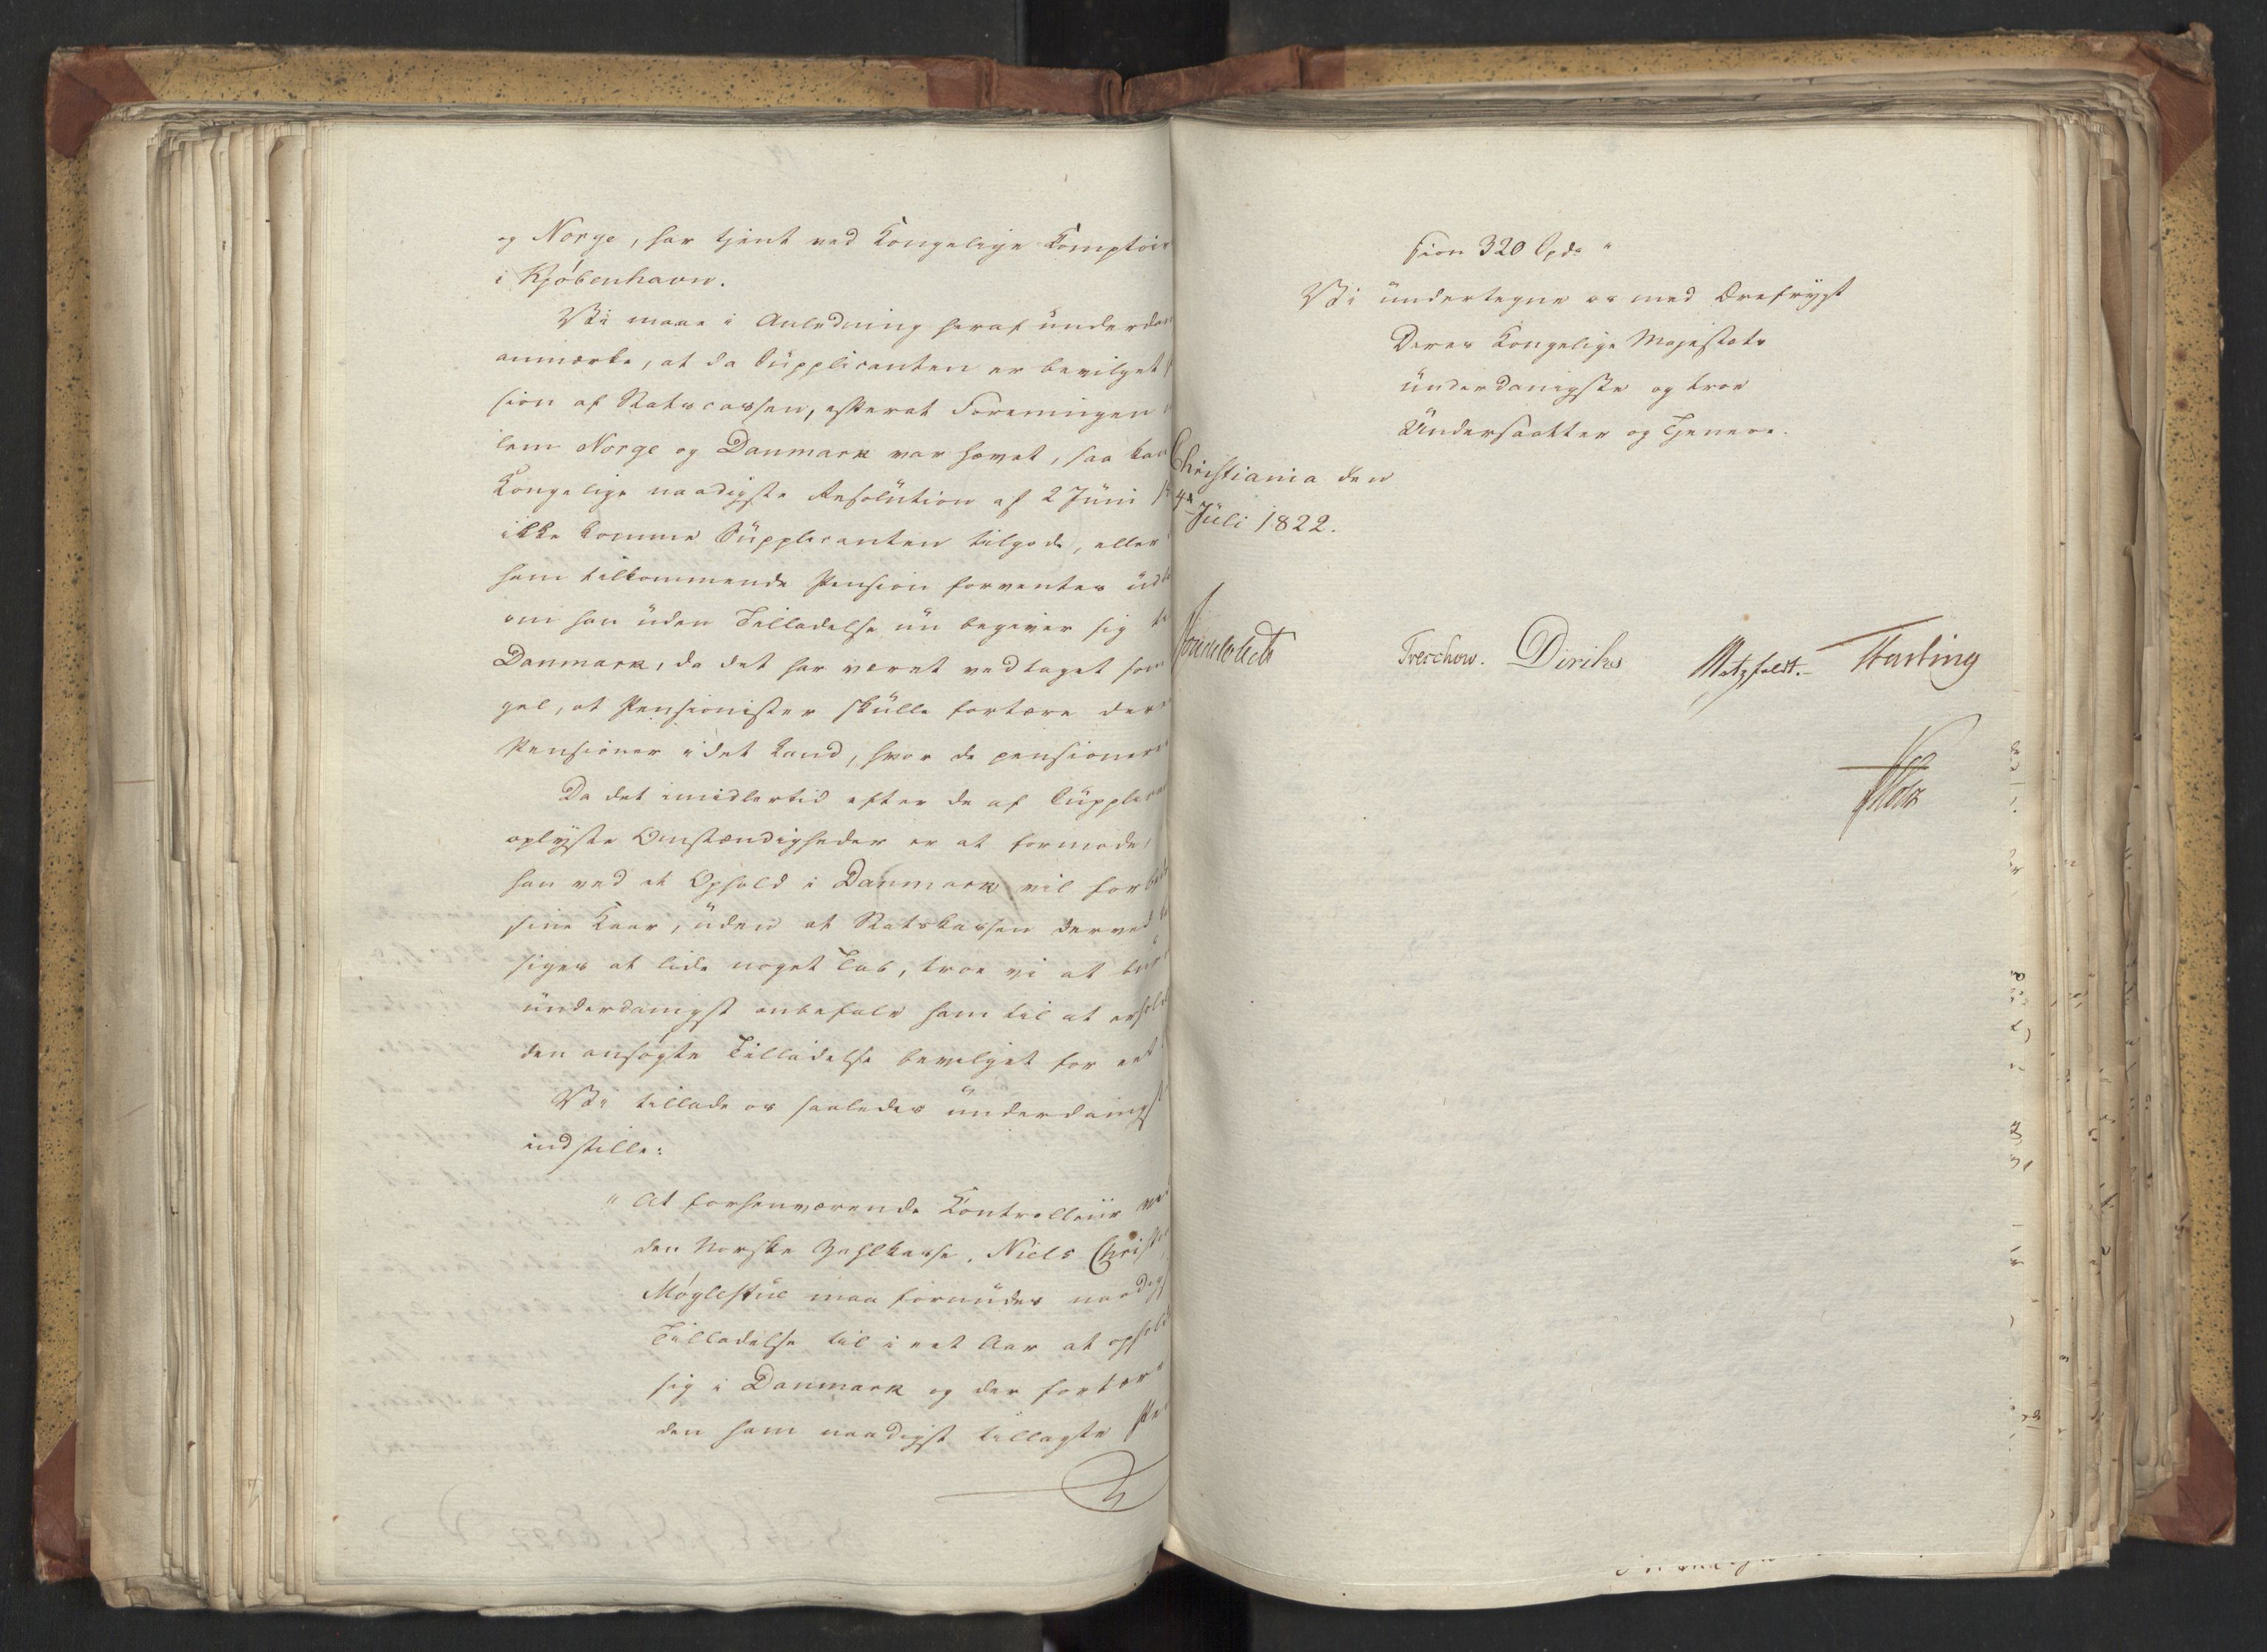 og Norge, har tjent ved Kongelige Comptoir
i Kjøbenhavn.
Vi maae i Anledning heraf underda
anmærke, at da Supplicanten er bevilget
sion af Statscassen, efterat Foreningen
lem Norge og Danmark var hævet, saa kan
Kongelige naadigste Resolution af 2 Juni
ikke komme Supplicanten tilgode, eller
ham tilkommende Pension forventes
om han uden Tilladelse nu begiver sig
Danmark, da det har været vedtaget som
gel, at Pensionister skulle fortære dere
Pensioner i det Land, hvor de pensionere
Da det imidlertid efter de af Supplican
oplyste Omstændigheder er at formode,
han ved et Ophold i Danmark vil forbedr
sine Kaar, uden at Statskassen derved
siges at lide noget Tab, troe vi at bur
underdanigst anbefale ham til at erhold
den ansøgte Tilladelse bevilget for eet
Vi tillade os saaledes underdanigst
indstille:
" At forhenværende Controlleur ved
den Norske Zahlkasse, Niels Christ
Møglestue maa forundes naadigst
Tilladelse til i eet Aar at ophold
sig i Danmark og der fortære
den ham naadigst tillagte Pen
sion 320 Spd. "
Vi undertegne os med Ærefrygt
Deres Kongelige Majestæts
underdanigste og troe
Undersaatter og Tjenere.
Christiania den
4de Juli 1822.
Sommerhielm
Treschow. Diriks Motzfeldt. Hasting
Holst